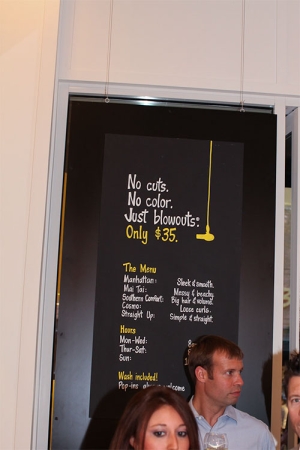 No cuts.
No color.
Just blowouts:
Only $35.
The Menu
Manhattan: Sleek & smooth.
Mai Tai: Messy & beachy.
Southern Comfort: Big hair & volume!
Cosmo: Loose curls.
Straight Up: Simple & straight.
Hours
Mon-Wed:
Thur-Sat:
Sun:
Wash included!
Pop-ins welcome